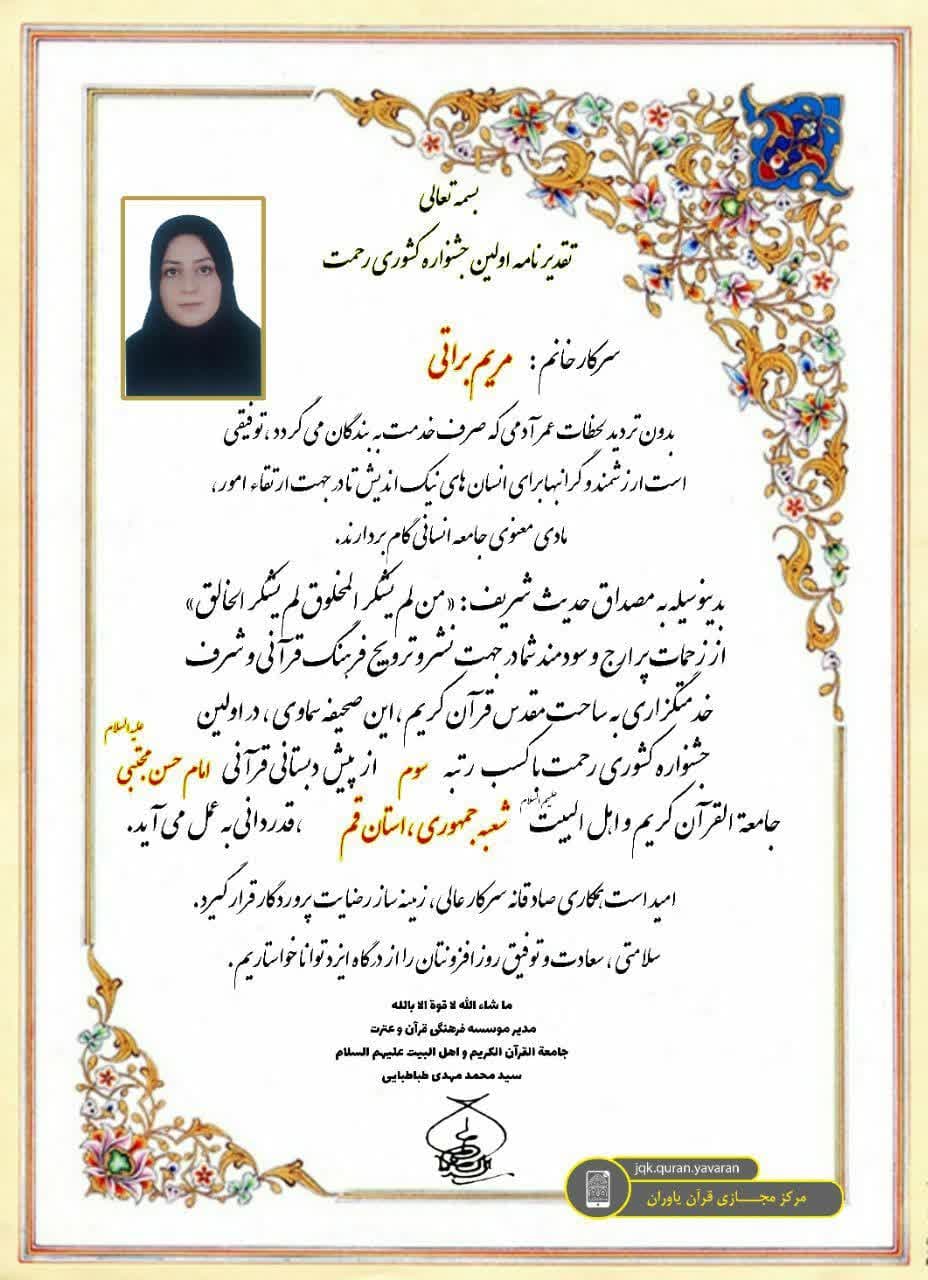 بسمه تعالی
تقدیرنامه اولین جشنواره کشوری رحمت
سرکار خانم : مریم براتی
بدون تردید لحظات عمر آدمی که صرف خدمت به بندگان می گردد ، توفیقی
است ارزشمند و گرانبها برای انسان های نیک اندیش تا در جهت ارتقاء امور ،
مادی معنوی جامعه انسانی گام بردارند.
بدینوسیله به مصداق حدیث شریف : «من لم یشکر المخلوق لم یشکر الخالق»
از زحمات پر ارج و سودمند شما در جهت نشر و ترویج فرهنگ قرآنی و شرف
خدمتگزاری به ساحت مقدس قرآن کریم ، این صحیفه سماوی ، در اولین
جشنواره کشوری رحمت با کسب رتبه سوم از پیش دبستانی قرآنی امام حسن مجتبی علیه السلام
جامعة القرآن کریم و اهل البیت علیهم السلام شعبه جمهوری ، استان قم ، قدردانی به عمل می آید.
امید است همکاری صادقانه سرکار عالی ، زمینه ساز رضایت پروردگار قرار گیرد.
سلامتی ، سعادت و توفیق روز افزونتان را از درگاه ایزد توانا خواستاریم.
ما شاء الله لا قوة الا بالله
مدیر موسسه فرهنگی قرآن و عترت
جامعة القرآن الکریم و اهل البیت علیهم السلام
سید محمد مهدی طباطبایی
jqk.quran.yavaran
مرکز مجـــازی قرآن یاوران